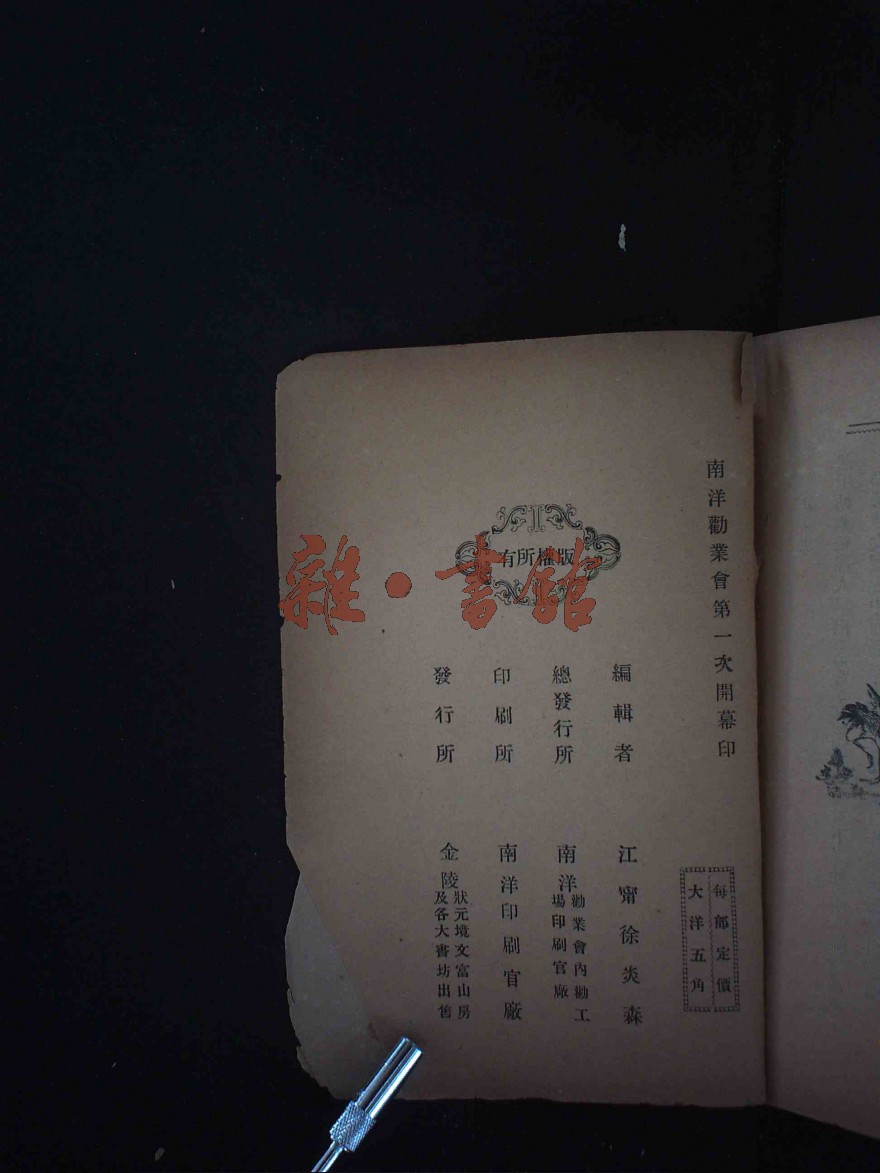 南洋勸業會第一次開幕印
每部定價
大洋五角
版權所有
編輯者 江甯徐炎森
總發行所 南洋勸業會內勸工場印刷官廠
印刷所 南洋印刷官廠
發行所 金陵狀元境文富山房及各大書坊出售
雜·書館